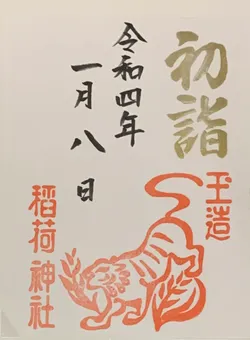 初詣
玉造
稲荷神社
令和四年
一月八日